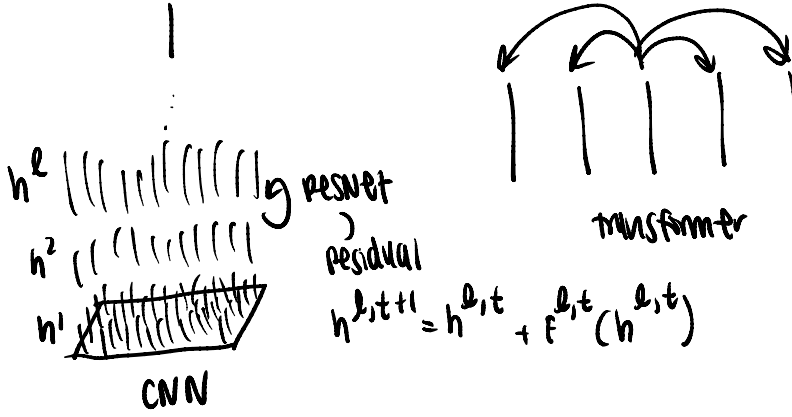 h^l
ResNet
h^2
Residual
h^1
h^{l,t+1} = h^{l,t} + F^{l,t}(h^{l,t})
CNN
transformer